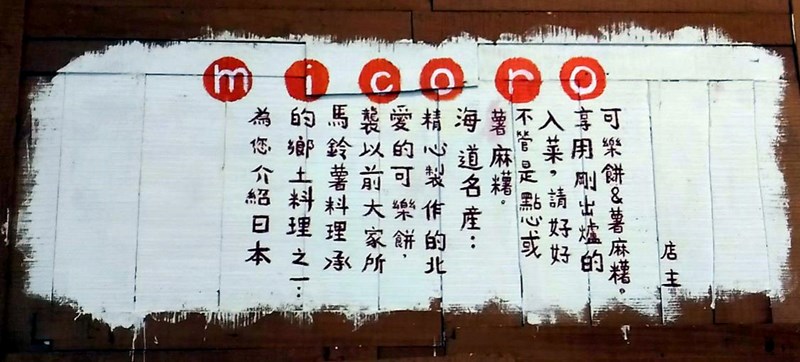 micoro
為您介紹日本
的鄉土料理之一：
馬鈴薯料理承
襲以前大家所
愛的可樂餅，
精心製作的北
海道名産：
薯麻糬。
不管是點心或
入菜，請好好
享用剛出爐的
可樂餅&薯麻糬。
店主